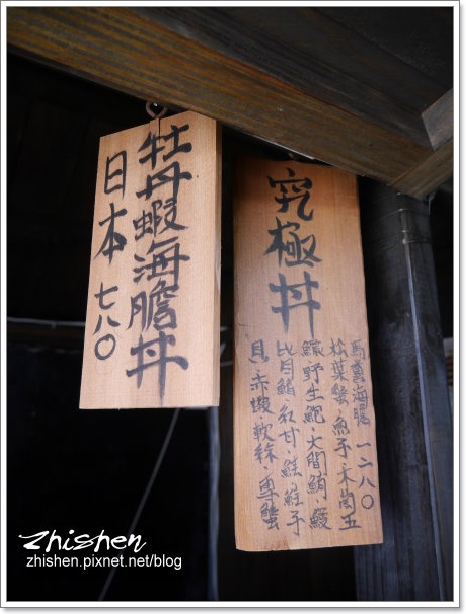 牡丹蝦海膽丼
日本 七八〇
究極丼
馬糞海膽 一二八〇
松葉蟹.魚子.
野生鮑.大間鮪.
比目鰭.紅甘.鮭.鮭子
貝.赤蝦.軟絲.雪蟹
zhishen
zhishen.pixnet.net/blog